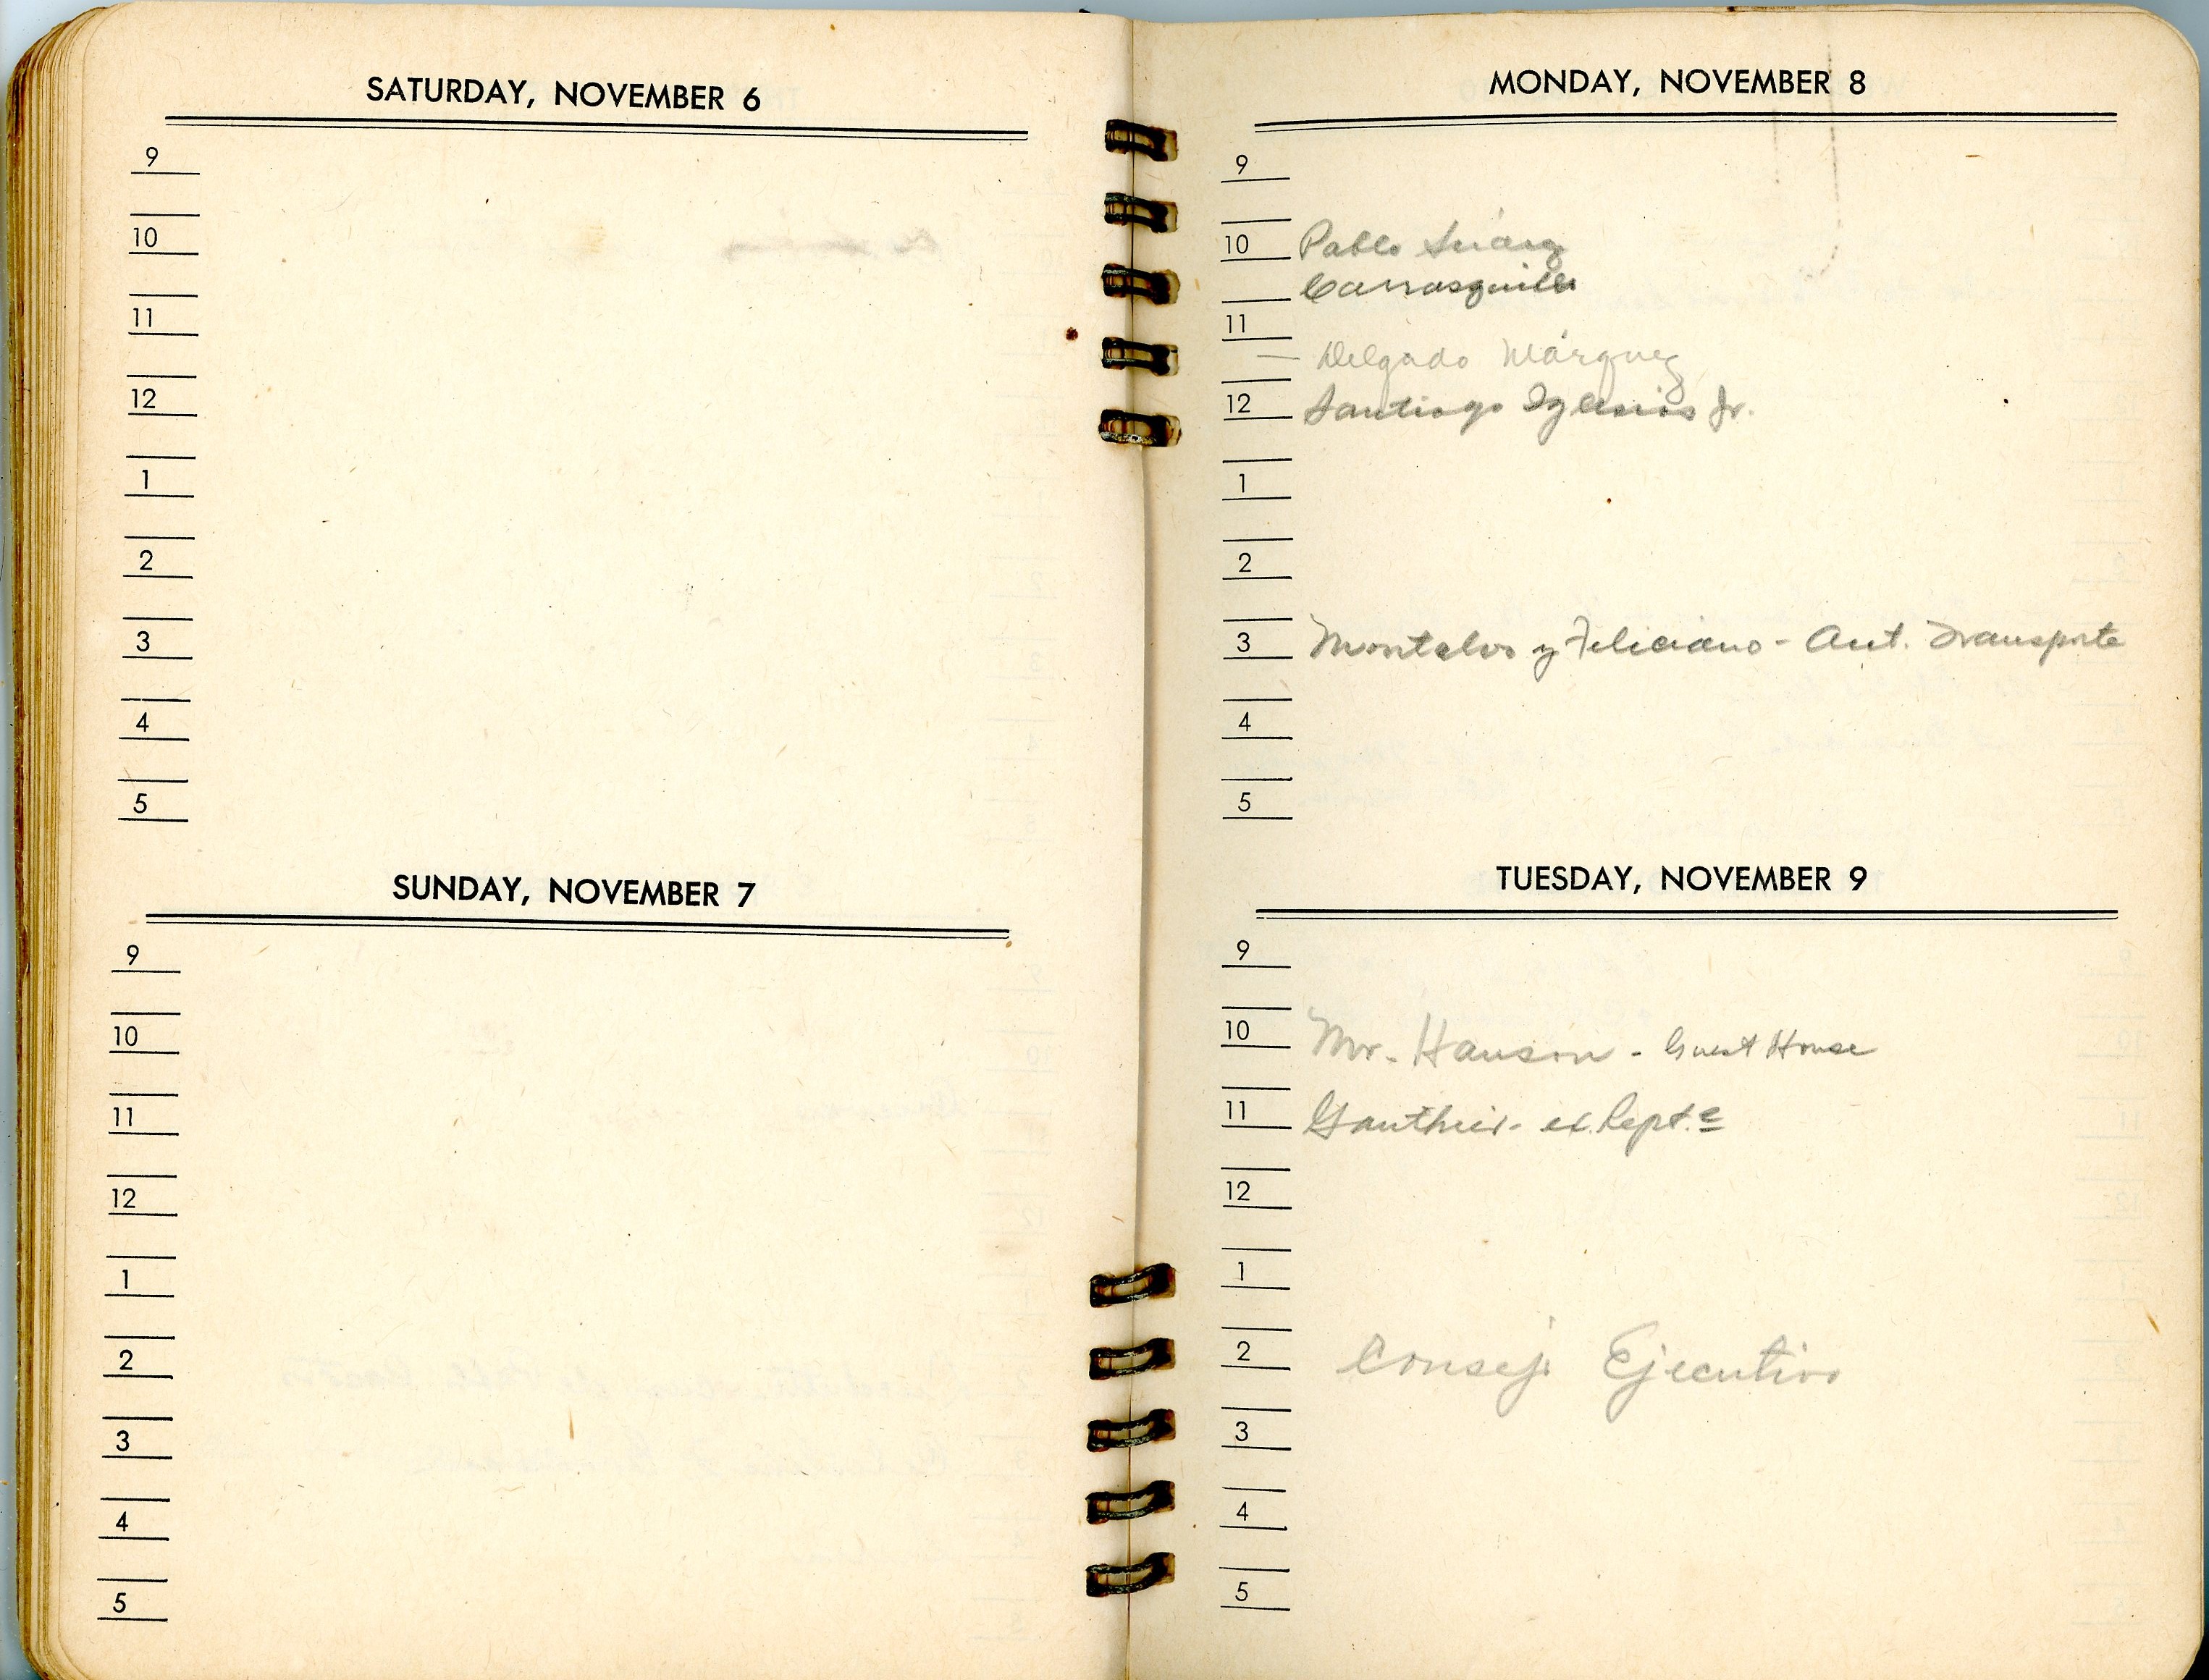 SATURDAY, NOVEMBER 6
9
10
11
12
1
2
3
4
5
SUNDAY, NOVEMBER 7
9
10
11
12
1
2
3
4
5
MONDAY, NOVEMBER 8
9
10 Pablo Suárez
Carrasquillo
11
— Delgado Márquez
12 Santiago Iglesias Jr.
1
2
3 Montalvo y Feliciano - Aut. Transporte
4
5
TUESDAY, NOVEMBER 9
9
10 Mr. Hanson - Guest House
11 Gauthier - ex. Repte
12
1
2 Consejo Ejecutivo
3
4
5